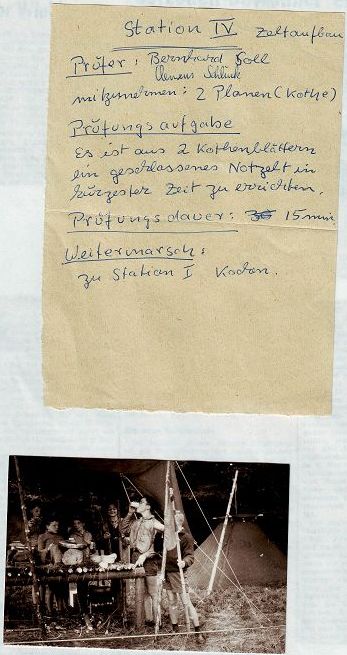 Station IV Zeltaufbau
Prüfer: Bernhard Soll
Clemens Schlink
mitzunehmen: 2 Planen (Kothe)
Prüfungsaufgabe
Es ist aus 2 Kothenblättern
ein geschlossenes Notzelt in
kürzester Zeit zu errichten.
Prüfungsdauer: 30 15 min.
Weitermarsch:
zu Station I Kochen.